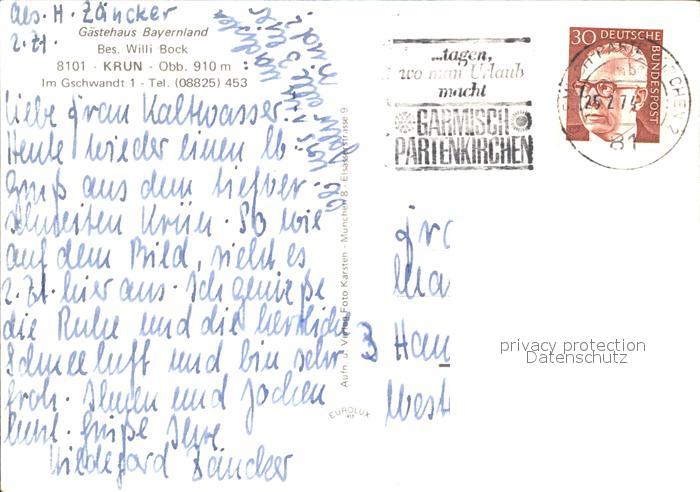 Abs. H. Zäncker
z. Zt.
Gästehaus Bayernland
Bes. Willi Bock
8101 - KRUN - Obb. 910 m
Im Gschwandt 1 - Tel. (08825) 453
Liebe Frau Kaltwasser:
Heute wieder einen lb.
Gruß aus dem tiefver-
schneiten Krün. So wie
auf dem Bild, sieht es
z. Zt. hier aus. Ich genieße
die Ruhe und die herrliche
Schneeluft und bin sehr
froh. Ihnen und Jochen
herzl. Grüße Ihre
Hildegard Zäncker
Aufn. u. Verlag Foto Karsten - München 8 - Elsässerstrasse 9
EUROLUX
...tagen,
wo man Urlaub
macht
GARMISCH
PARTENKIRCHEN
30 DEUTSCHE
BUNDESPOST
CHEN 2
25.2.74
81
3 Han
West
privacy protection
Datenschutz